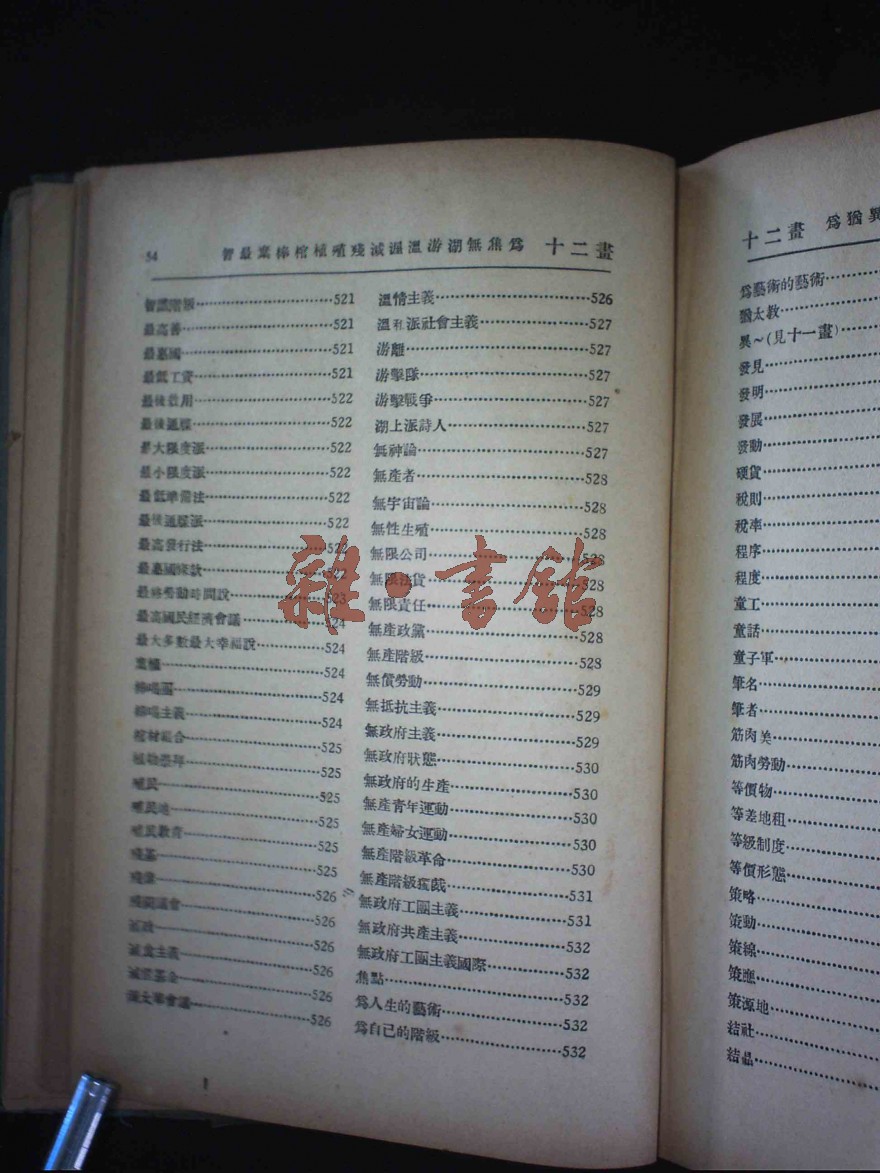 54 智最棄棒棺植殖殘減渥溫游湖無焦爲 十二畫
智識階級 521
最高善 521
最惠國 521
最低工資 521
最後效用 522
最後通牒 522
最大限度派 522
最小限度派 522
最低準備法 522
最後通牒派 522
最高發行法 522
最惠國條款 522
最終勞動時間說 523
最高國民經濟會議 524
最大多數最大幸福說 524
棄權 524
棒喝團 524
棒喝主義 524
棺材組合 525
植物崇拜 525
殖民 525
殖民地 525
殖民教育 525
殘基 525
殘業 526
殘闕議會 526
減政 526
減食主義 526
減債基金 526
渥太華會議 526
溫情主義 526
溫和派社會主義 527
游離 527
游擊隊 527
游擊戰爭 527
湖上派詩人 527
無神論 527
無產者 528
無宇宙論 528
無性生殖 528
無限公司 528
無限法貨 528
無限責任 528
無產政黨 528
無產階級 528
無償勞動 529
無抵抗主義 529
無政府主義 529
無政府狀態 530
無政府的生產 530
無產青年運動 530
無產婦女運動 530
無產階級革命 530
無產階級獨裁 531
無政府工團主義 531
無政府共產主義 532
無政府工團主義國際 532
焦點 532
爲人生的藝術 532
爲自己的階級 532
十二畫 爲猶異
爲藝術的藝術
猶太教
異～(見十一畫)
發見
發明
發展
發動
硬貨
稅則
稅率
程序
程度
童工
童話
童子軍
筆名
筆者
筋肉美
筋肉勞動
等價物
等差地租
等級制度
等價形態
策略
策動
策線
策應
策源地
結社
結晶
雜·書館